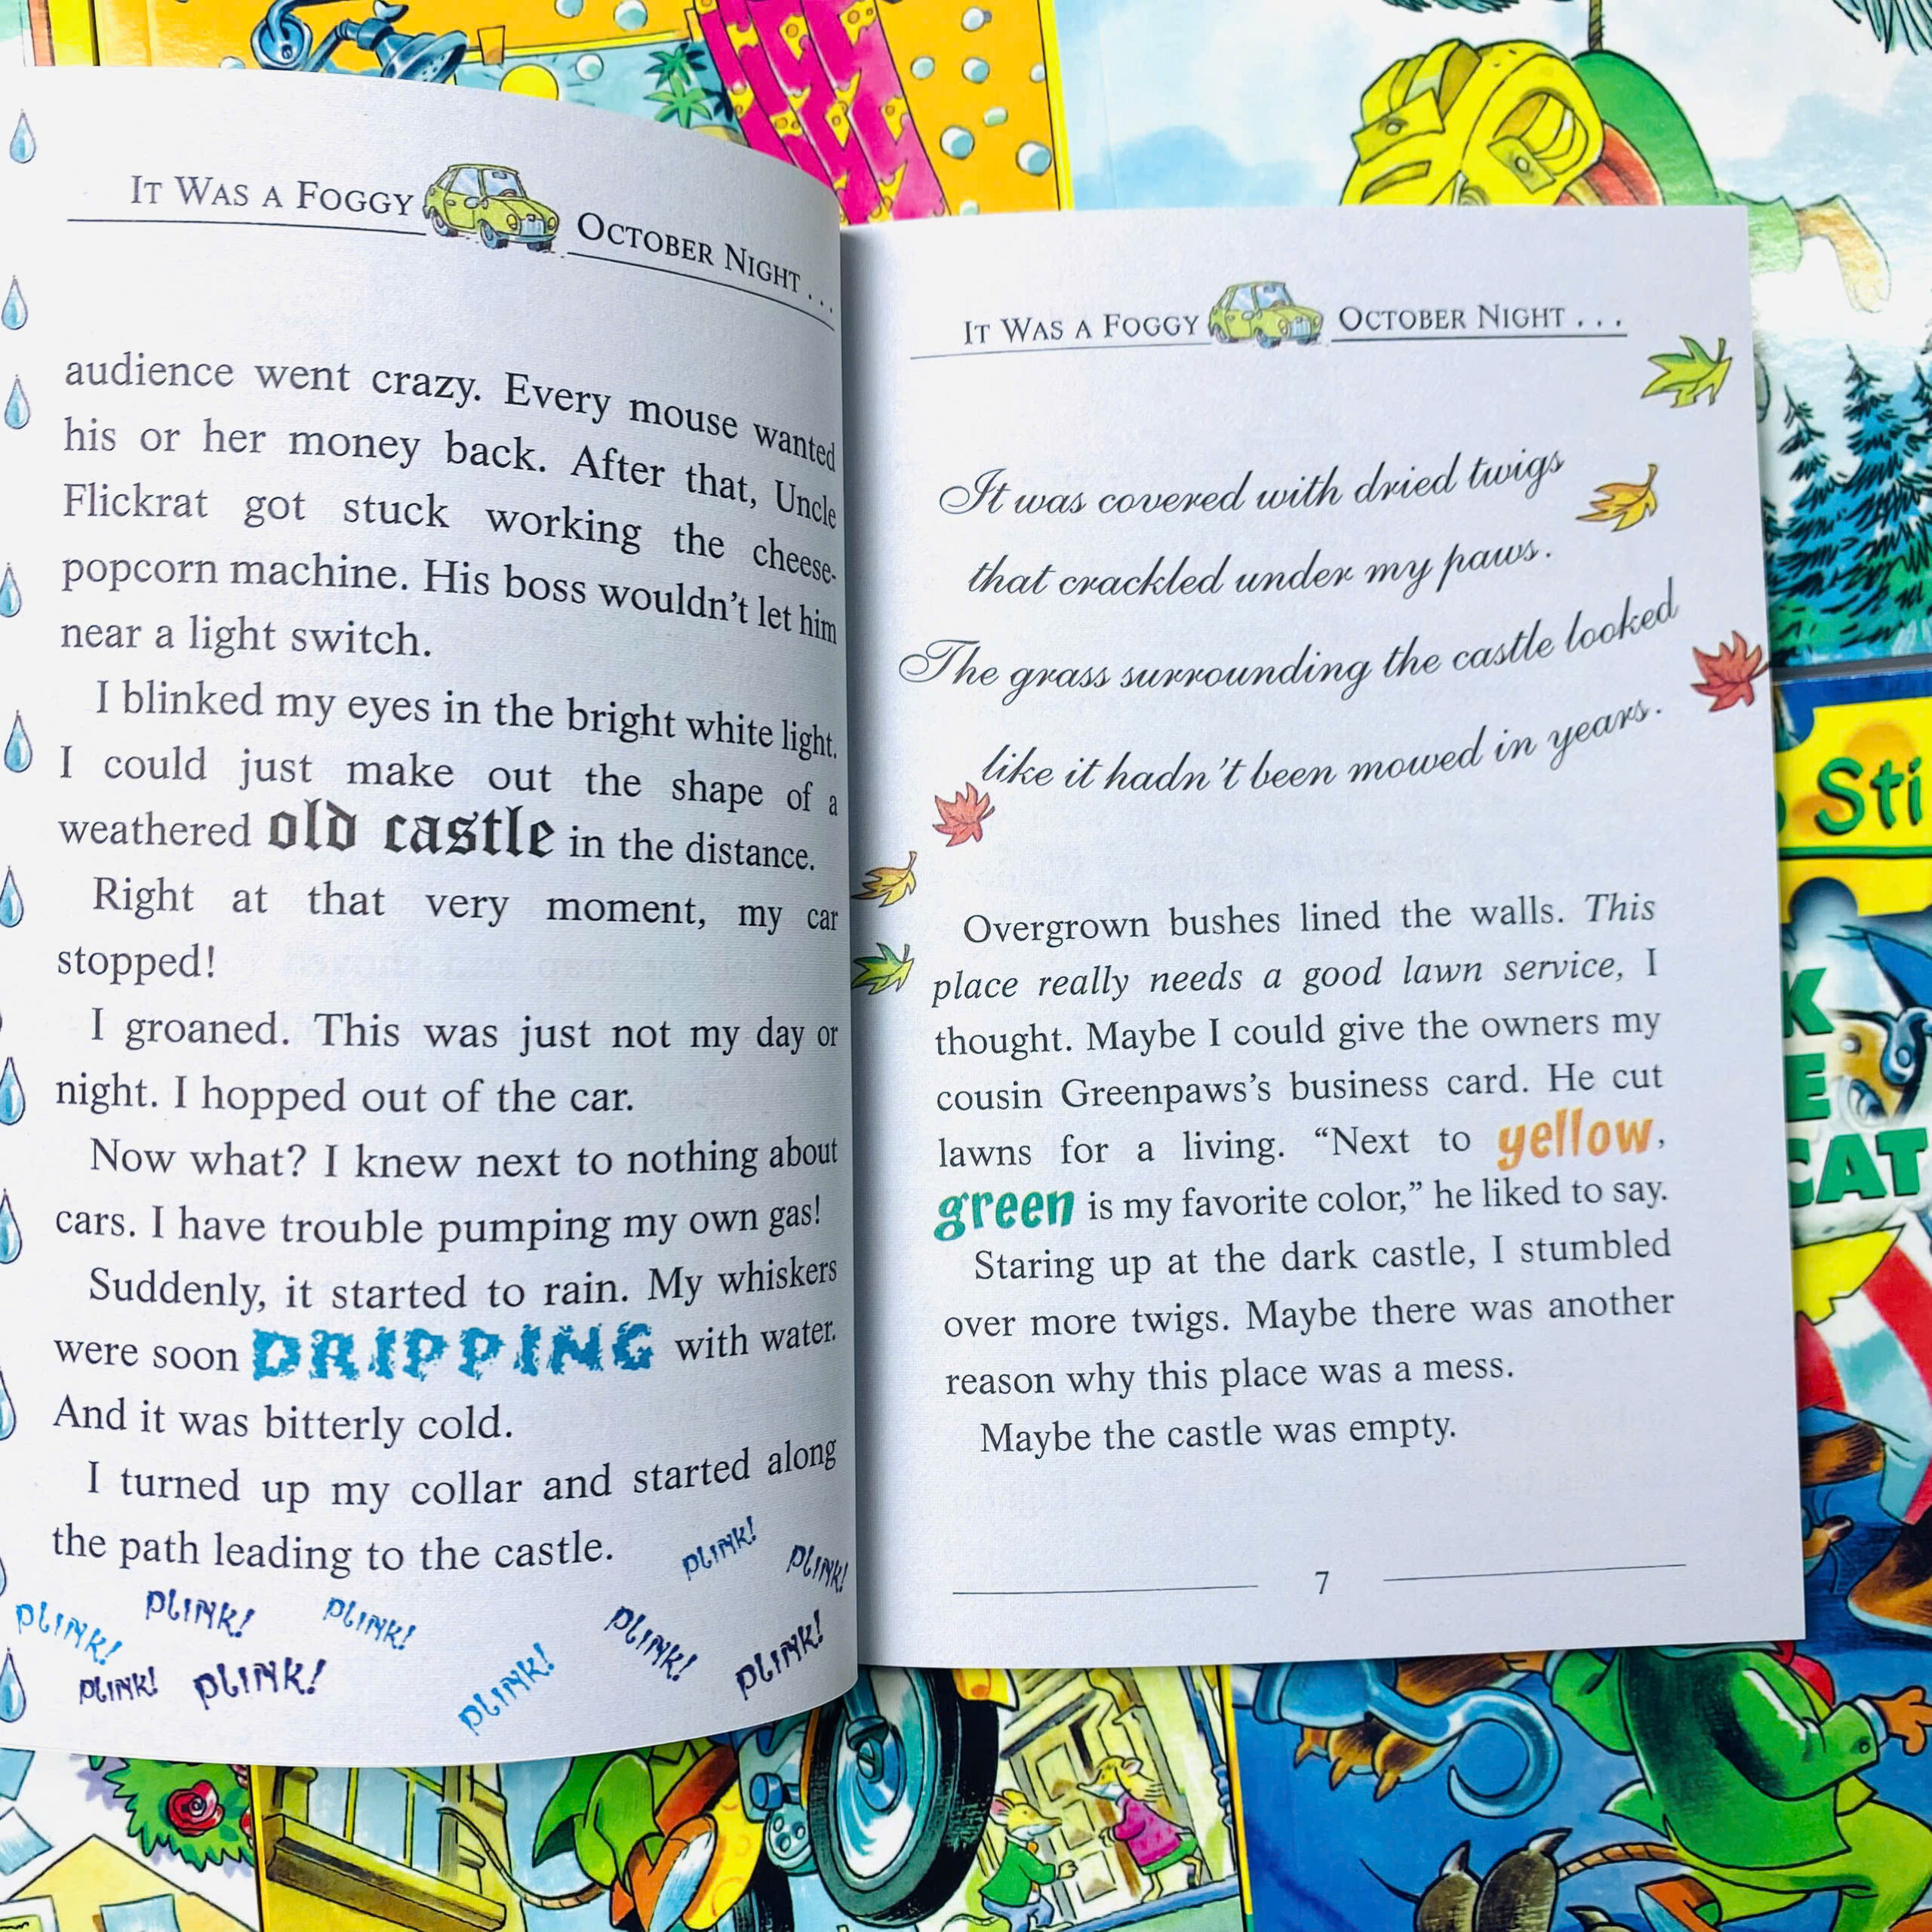 IT WAS A FOGGY OCTOBER NIGHT . . .
audience went crazy. Every mouse wanted
his or her money back. After that, Uncle
Flickrat got stuck working the cheese-
popcorn machine. His boss wouldn't let him
near a light switch.
I blinked my eyes in the bright white light.
I could just make out the shape of a
weathered old castle in the distance.
Right at that very moment, my car
stopped!
I groaned. This was just not my day or
night. I hopped out of the car.
Now what? I knew next to nothing about
cars. I have trouble pumping my own gas!
Suddenly, it started to rain. My whiskers
were soon DRIPPING with water.
And it was bitterly cold.
I turned up my collar and started along
the path leading to the castle.
PLINK!
PLINK!
PLINK!
PLINK!
PLINK!
PLINK!
PLINK!
PLINK!
PLINK!
PLINK!
IT WAS A FOGGY OCTOBER NIGHT . . .
It was covered with dried twigs
that crackled under my paws.
The grass surrounding the castle looked
like it hadn't been mowed in years.
Overgrown bushes lined the walls. This
place really needs a good lawn service, I
thought. Maybe I could give the owners my
cousin Greenpaws's business card. He cut
lawns for a living. "Next to yellow,
green is my favorite color," he liked to say.
Staring up at the dark castle, I stumbled
over more twigs. Maybe there was another
reason why this place was a mess.
Maybe the castle was empty.
7
Sti
K
E
CAT